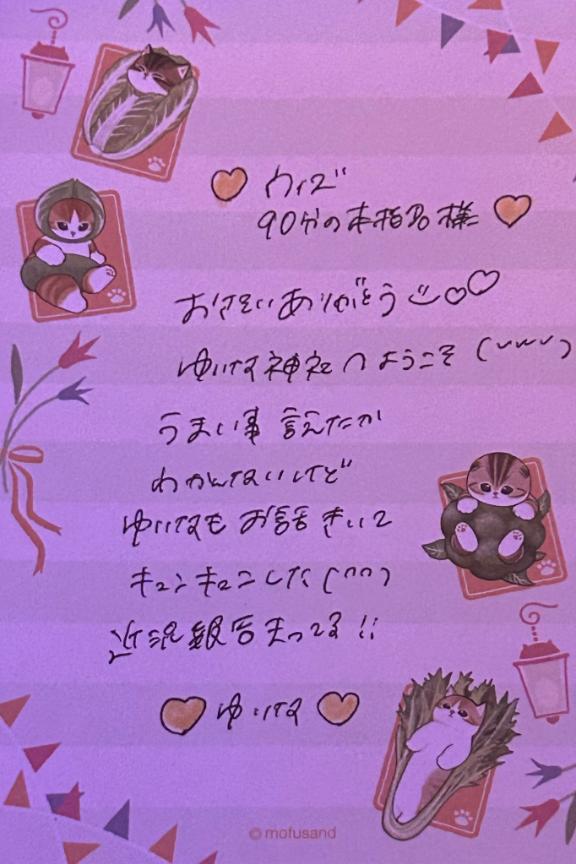 ウィズ
90分の本指名様
おさそいありがとう
ゆいな神社へようこそ
うまい事 言えたか
わかんないけど
ゆいなも お話 きいて
キュンキュンした
近況報告まってる!!
ゆいな
© mofusand